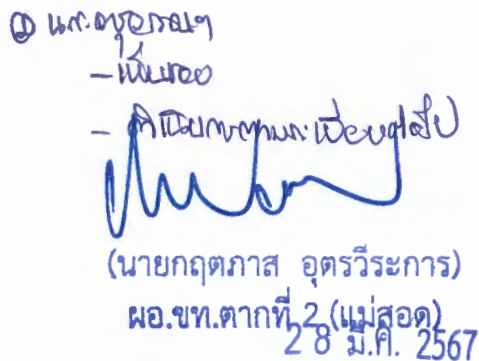 - เห็นชอบ
- ดำเนินการตามระเบียบต่อไป
(นายกฤตภาส อุตรวีระการ)
ผอ.ขท.ตากที่ 2 (แม่สอด)
28 มี.ค. 2567